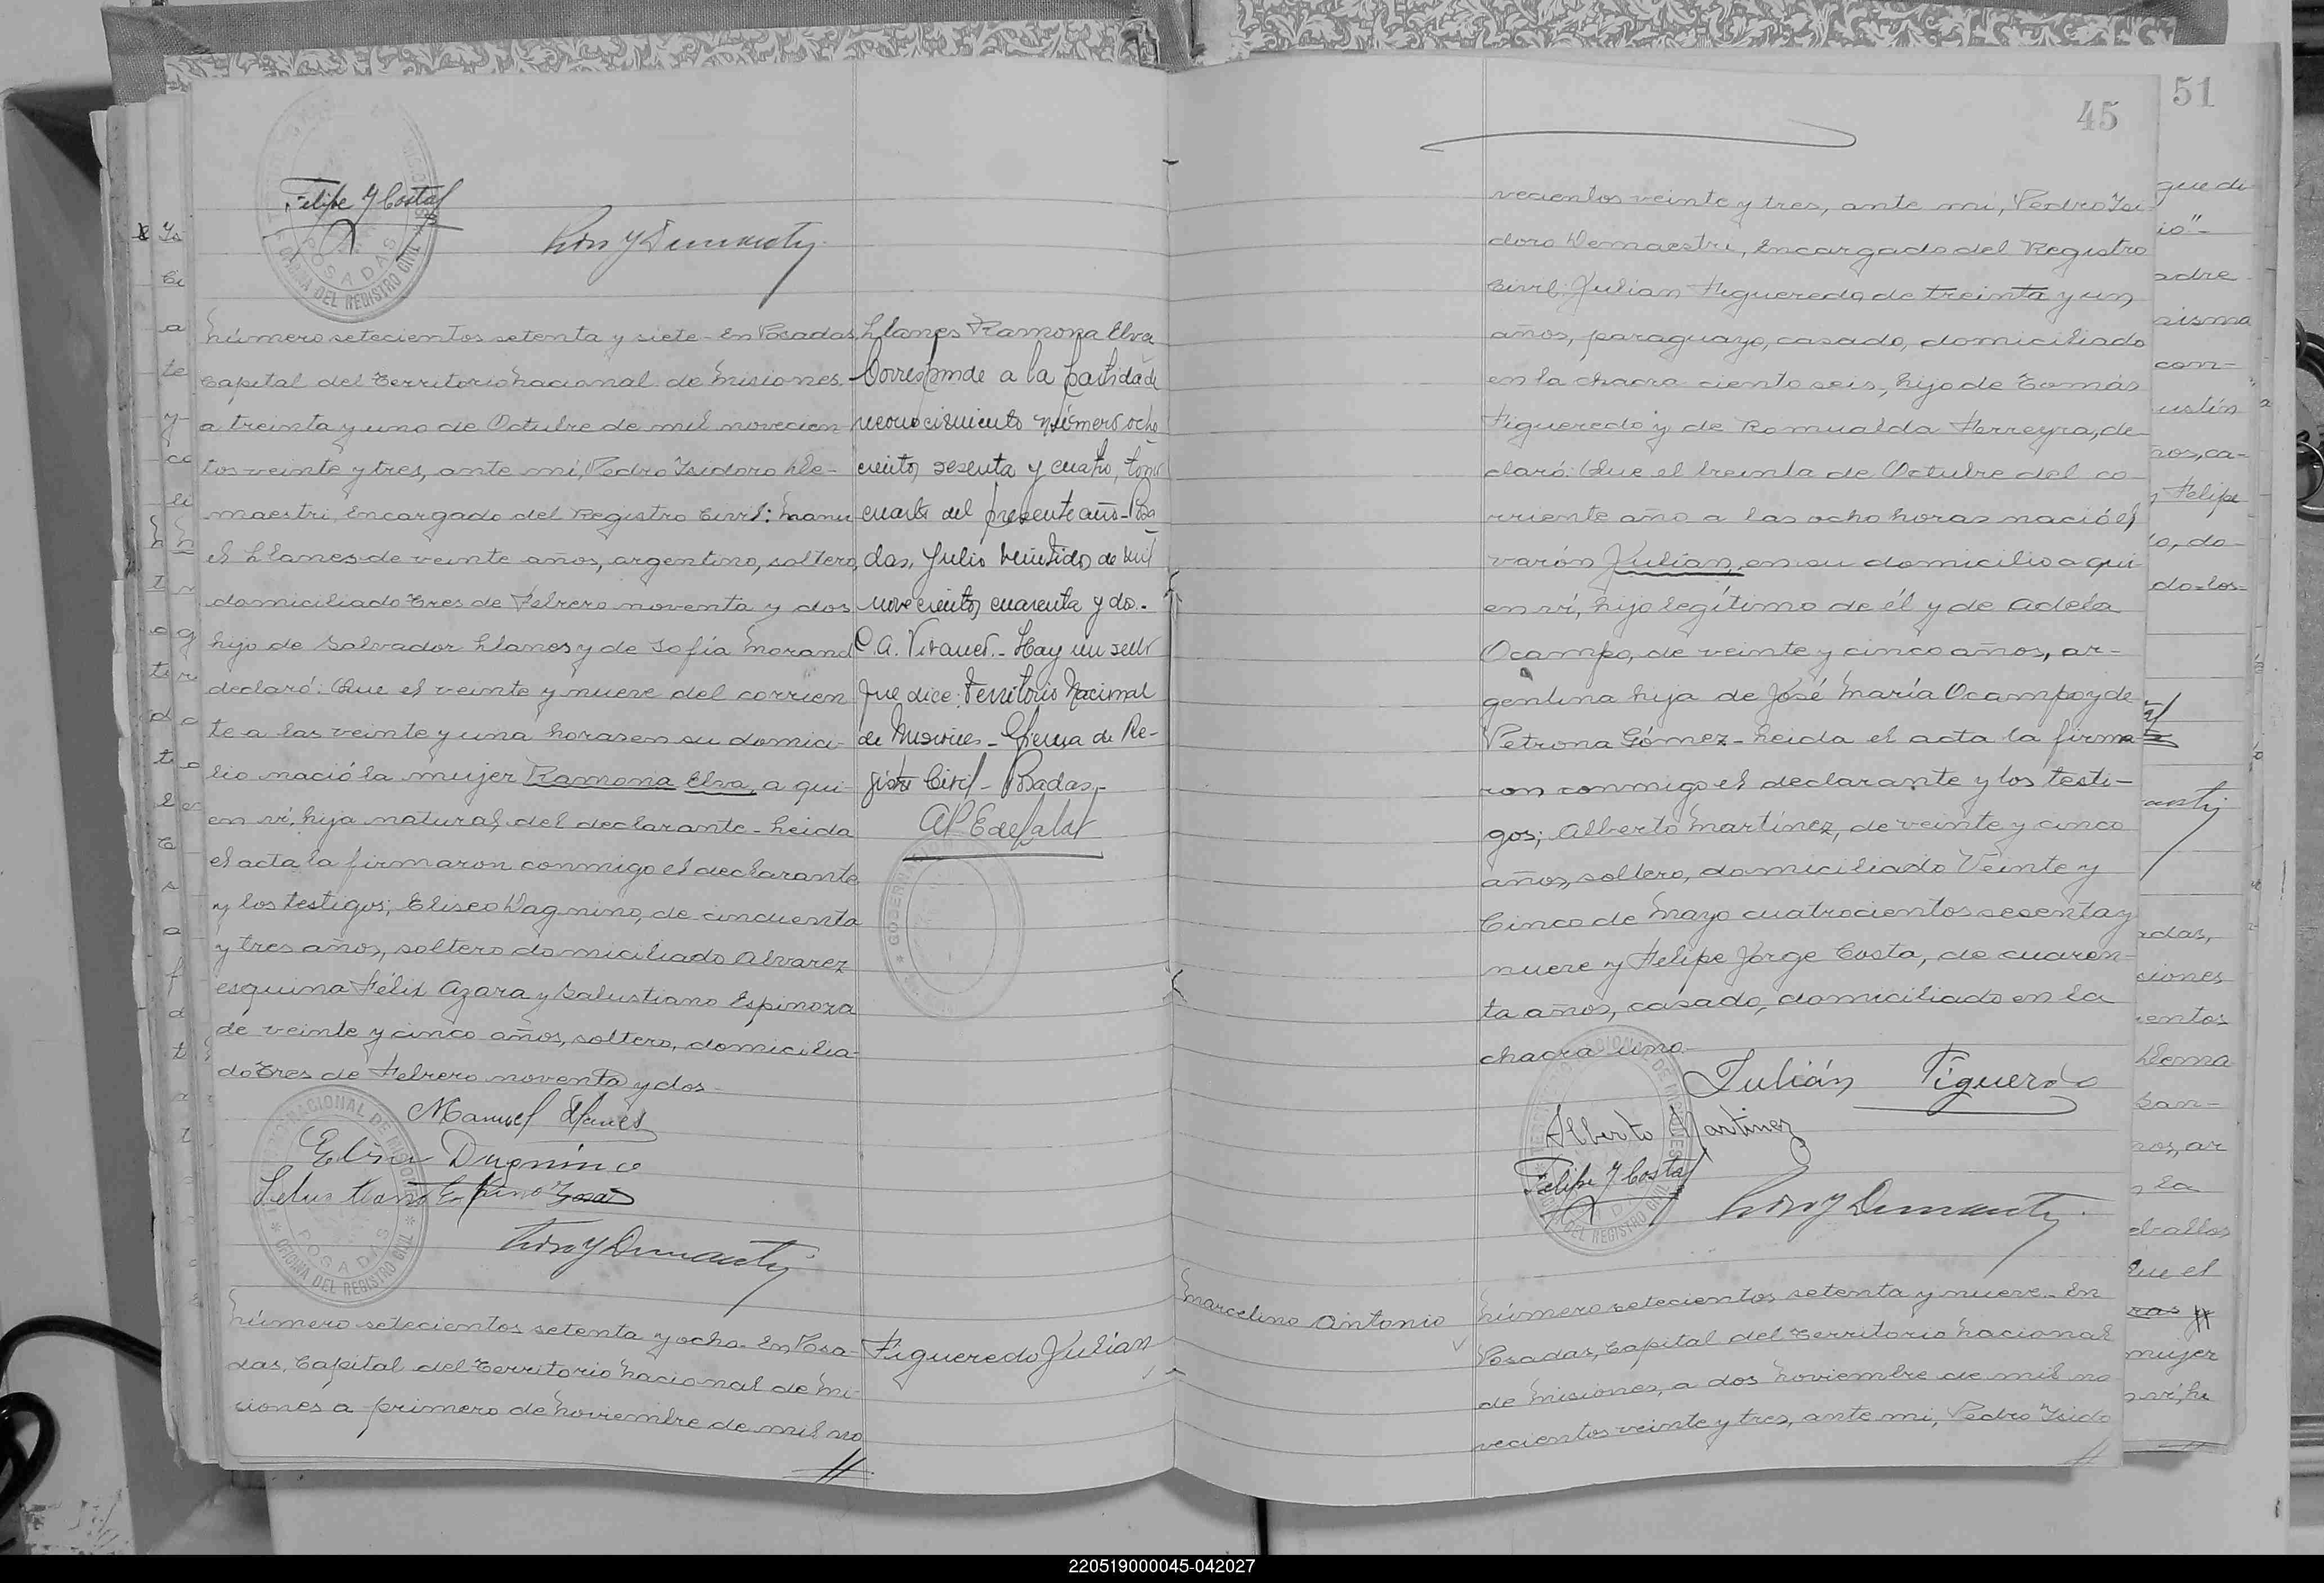 Felipe J Costa
número setecientos setenta y siete - En Posadas,
Capital del Territorio Nacional de Misiones
a treinta y uno de Octubre de mil novecien
tos veinte y tres, ante mí, Pedro Isidoro De-
maestri, Encargado del Registro Civil: Manu
el Llanes de veinte años, argentino, soltero,
domiciliado Tres de Febrero noventa y dos
hijo de Salvador Llanes y de Sofía Morand
declaró: Que el veinte y nueve del corrien
te a las veinte y una horas en su domici-
lio nació la mujer Ramona Elva, a qui-
en ví, hija natural del declarante - Leida
el acta la firmaron conmigo el declarante
y los testigos; Eliseo Dagnino, de cincuenta
y tres años, soltero domiciliado Alvarez
esquina Félix Azara y Salustiano Espinoza
de veinte y cinco años, soltero, domicilia-
do Tres de Febrero noventa y dos -
Manuel Llanes
Eliseo Dagnino
Salustiano Espinoza
TERRITORIO NACIONAL DE MISIONES
POSADAS
OFICINA DEL REGISTRO CIVIL
Número setecientos setenta y ocho - En Posa-
das, Capital del Territorio Nacional de Mi-
siones a primero de Noviembre de mil no
Llanes Ramona Elva
Corresponde a la partida de
reconocimiento número ocho
cientos sesenta y cuatro, tomo
cuarto del presente año - Posa
das, Julio veintidos de mil
novecientos cuarenta y dos.-
Hay un sello
que dice: Territorio Nacional
de Misiones - Oficina de Re-
gistro Civil - Posadas -
Figueredo Julián
45
51
vecientos veinte y tres, ante mi, Pedro Isi-
doro Demaestri, Encargado del Registro
Civil: Julian Figueredo de treinta y un
años, paraguayo, casado, domiciliado
en la chacra ciento seis, hijo de Tomás
Figueredo y de Romualda Ferreyra, de-
claró: Que el treinta de Octubre del co-
rriente año a las ocho horas nació el
varón Julián, en su domicilio a qui
en ví, hijo legítimo de él y de Adela
Ocampo, de veinte y cinco años, ar-
gentina hija de José María Ocampo y de
Petrona Gómez - Leida el acta la firma-
ron conmigo el declarante y los testi-
gos; Alberto Martínez, de veinte y cinco
años, soltero, domiciliado Veinte y
Cinco de Mayo cuatrocientos sesenta y
nueve y Felipe Jorge Costa, de cuaren-
ta años, casado, domiciliado en la
chacra uno -
Julián Figueredo
Alberto Martinez
Felipe J Costa
Marcelino Antonio
Número setecientos setenta y nueve - En
Posadas, Capital del Territorio Nacional
de Misiones, a dos Noviembre de mil no
vecientos veinte y tres, ante mi, Pedro Isido
220519000045-042027